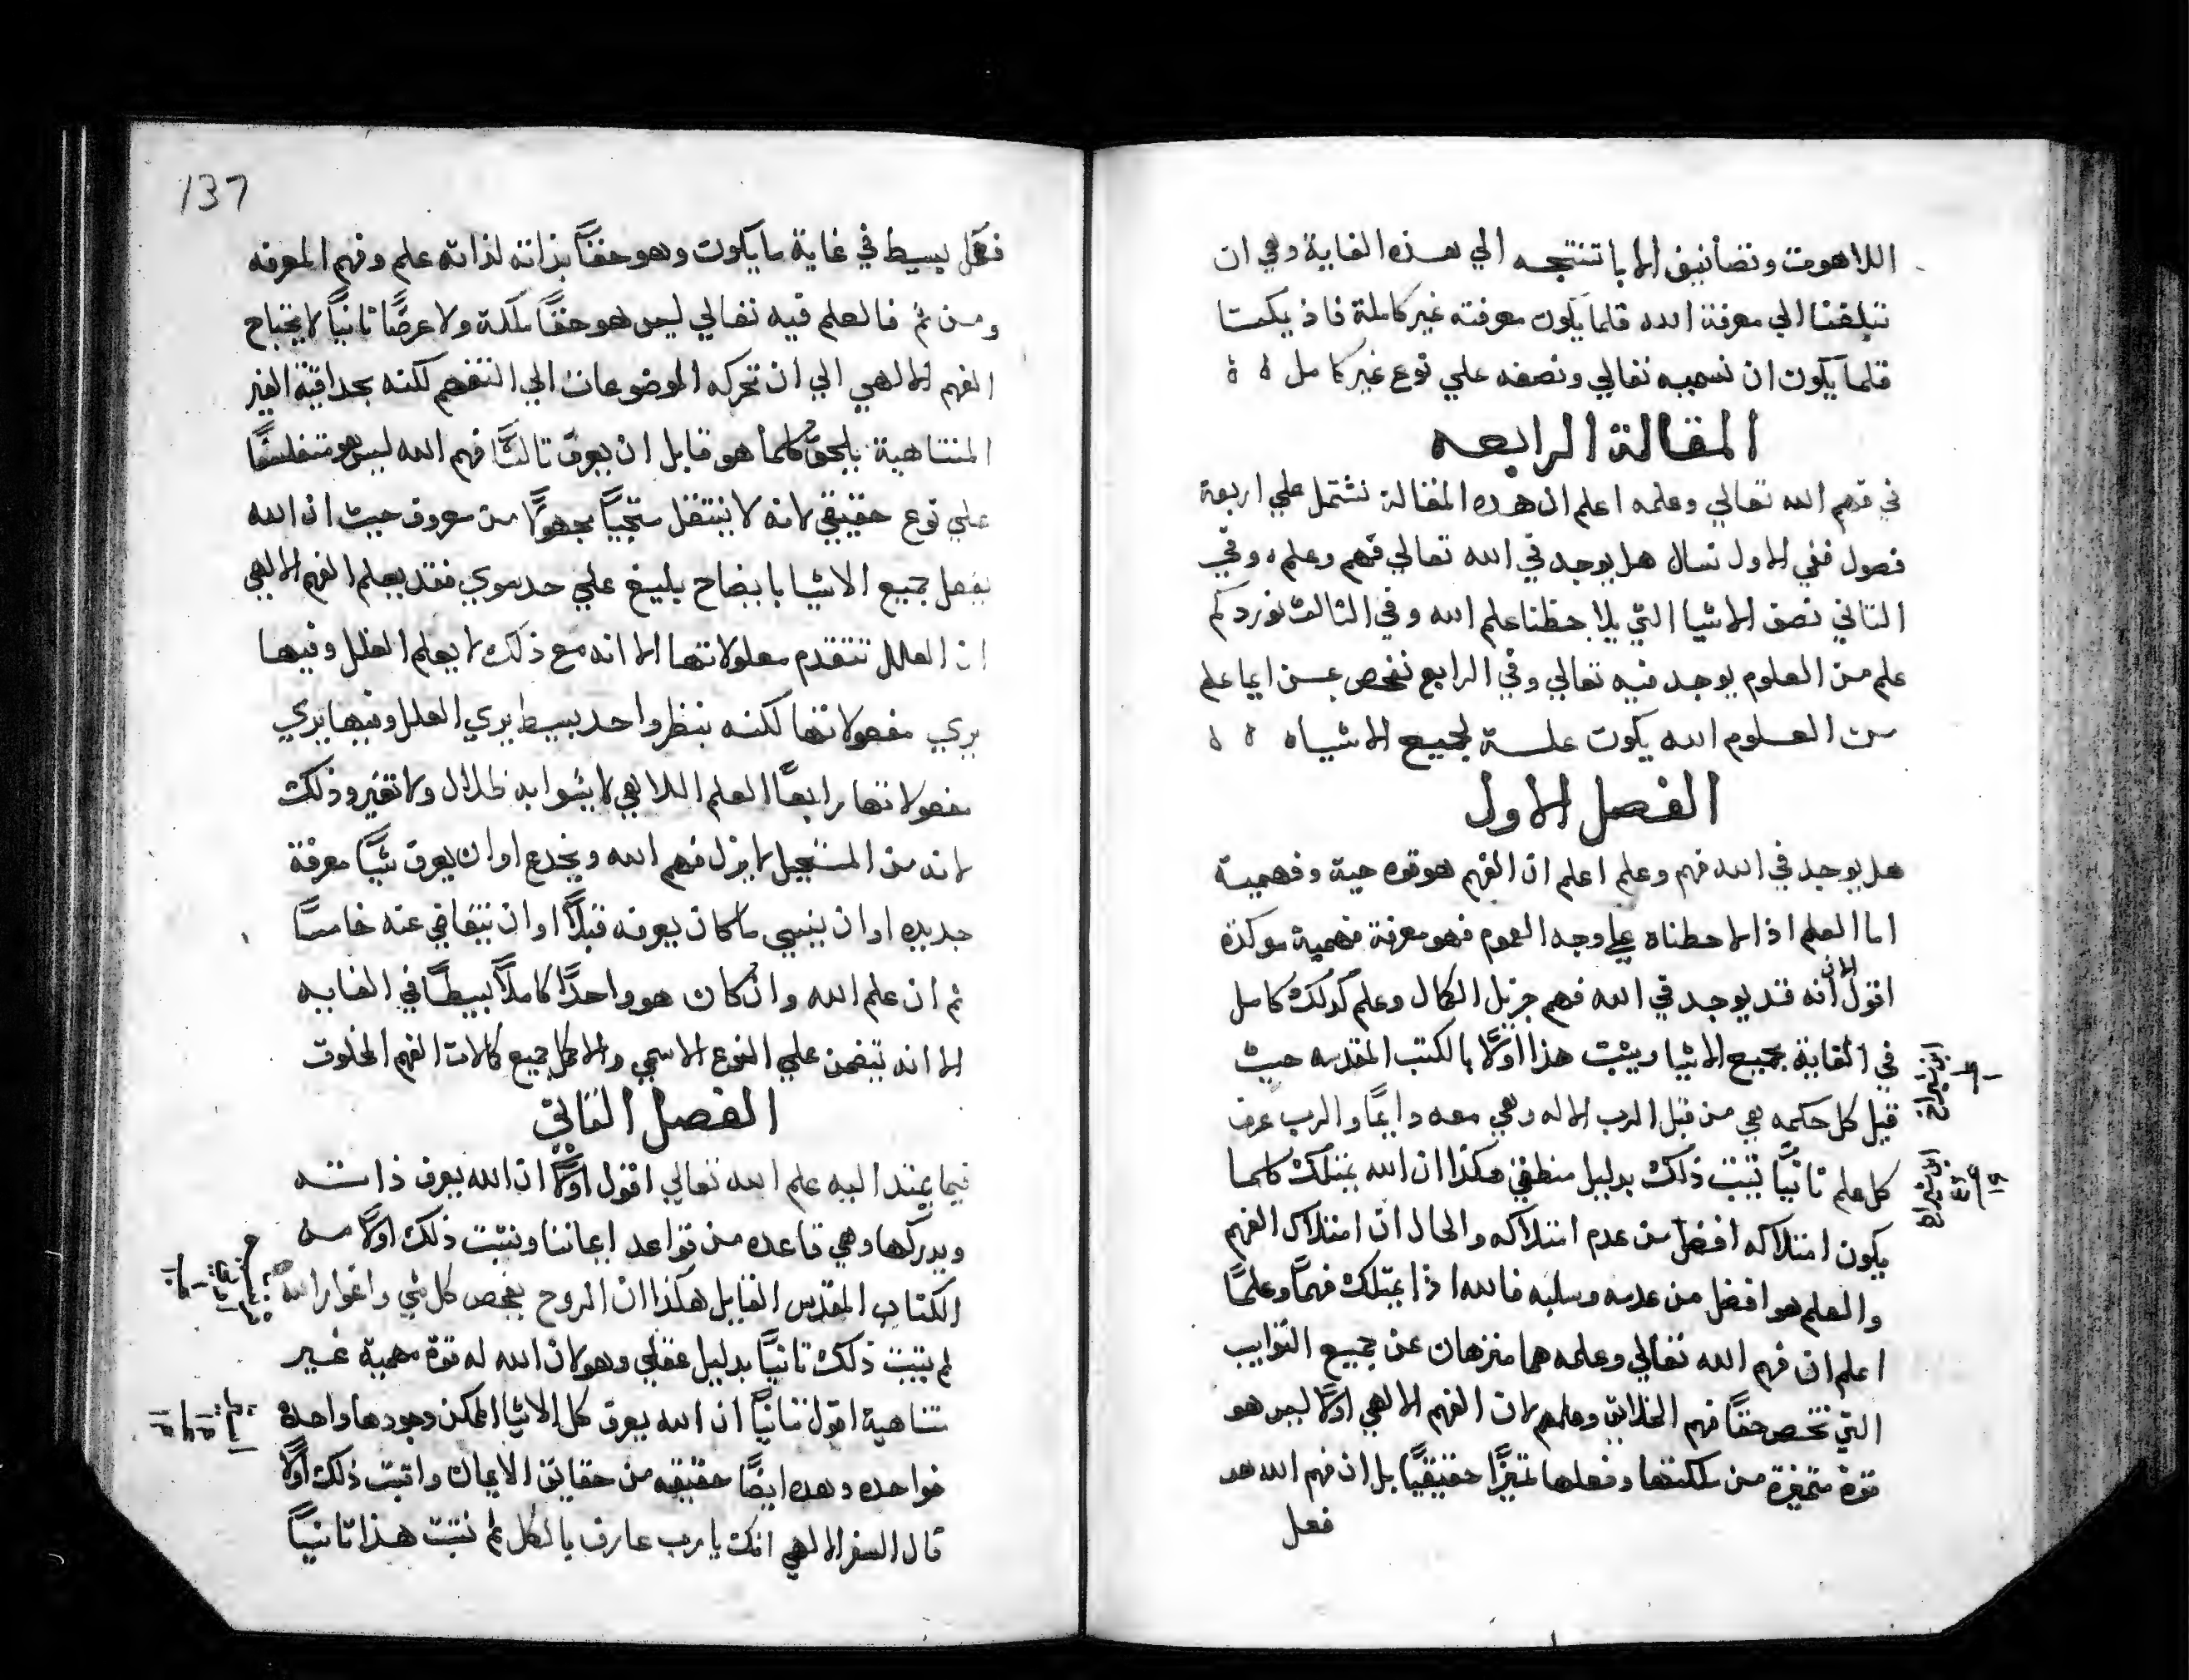 اللاهوت وتصانيف الابا تنتجه الي هذه الغاية وهي ان
تبلغنا الي معرفة الله قلما يكون معرفته غير كاملة فاذ يمكننا
قلما يكون ان نسميه تعالي ونصفه علي نوع غير كامل ه ه
المقالة الرابعه
في فهم الله تعالي وعلمه اعلم ان هده المقالة تشتمل علي اربعة
فصول ففي الاول نسال هل يوجد في الله تعالي فهم وعلم ه وفي
التاني نصف الاشيا التي يلاحظنا علم الله وفي الثالث نورد كم
علم من العلوم يوجد فيه تعالي وفي الرابع نفحص عن ايما علم
من العلوم الله يكون علة لجميع الاشياه ه ه
الفصل الاول
هل يوجد في الله فهم وعلم اعلم ان الفهم هو قوه حية وفهمية
اما العلم اذا لاحظناه علي وجه العموم فهو معرفة فهمية موكدة
اقول الان انه قد يوجد في الله فهم جزيل الكمال وعلم كدلك كامل
في الغاية بجميع الاشيا ويثبت هذا اولًا بالكتب المقدسه حيث
قيل كل حكمه هي من قبل الرب الاله وهي معه دايمًا والرب عرف
كل علم ثانيًا نثبت ذلك بدليل منطقي هكذا ان الله يمتلك كلما
يكون امتلاكه افضل من عدم امتلاكه والحال ان امتلاك الفهم
والعلم هو افضل من عدمه وسلبه فالله اذا يمتلك فهمًا وعلمًا
اعلم ان فهم الله تعالي وعلمه هما منزهان عن جميع الشوايب
التي تخص حقًا فهم الخلايق وعلمهم لان الفهم الالهي اولًا ليس هو
قوة متميزة من ملكتها وفعلها تميزًا حقيقيًا بل ان فهم الله هو
فعل
137
فعل بسيط في غاية ما يكون وهو حقًا بذاته لذاته علم وفهم المعرفه
ومن ثم فالعلم فيه تعالي ليس هو حقًا ملكة ولا عرضًا ثانيًا لا يحتاج
الفهم الالهي الي ان تحركه الموضوعات الي التفهم لكنه بحداقته الغير
المتناهية يلحق كلما هو قابل ان يعرف ثالثًا فهم الله ليس هو متفلسفًا
علي نوع حقيقي لانه لا ينتقل منتجيًا مجهولًا من معروف حيث ان الله
يفعل جميع الاشيا بايضاح بليغ علي حد سوي فقد يعلم الفهم الالهي
ان العلل تتقدم معلولاتها الا انه مع ذلك لا يعلم العلل وفيها
يري مفعولاتها لكنه بنظر واحد بسيط يري العلل وفيها يري
مفعولاتها رابعًا العلم اللاهي لا يشوابه ظلال ولا تغير وذلك
لانه من المستحيل لا يزل فهم الله ويخدع او ان يعرف شيًا معرفة
جديده او ان ينسي ما كان يعرفه قبلًا او ان يتغافي عنه خامسًا
ثم ان علم الله وان كان هو واحدًا كاملًا بسيطًا في الغايه
الا انه يتضمن علي النوع الاسمي والاكمل جميع كمالات الفهم المخلوق
الفصل التاني
فيما يمتد اليه علم الله تعالي اقول اولًا ان الله يعرف ذاته
ويدركها وهي قاعده من قواعد ايماننا ونثبت ذلك اولًا من
الكتاب المقدس القايل هكذا ان الروح يفحص كل شي واغوار الله
ثم يثبت ذلك ثانيًا بدليل عقلي وهو لان الله له قوة فهمية غير
متناهية اقول ثانيًا ان الله يعرف كل الاشيا الممكن وجودها واحدة
فواحده وهده ايضًا حقيقه من حقايق الايمان واثبت ذلك اولًا
قال السفر الالهي انك يا رب عارف بالكل ثم نثبت هذا ثانيًا